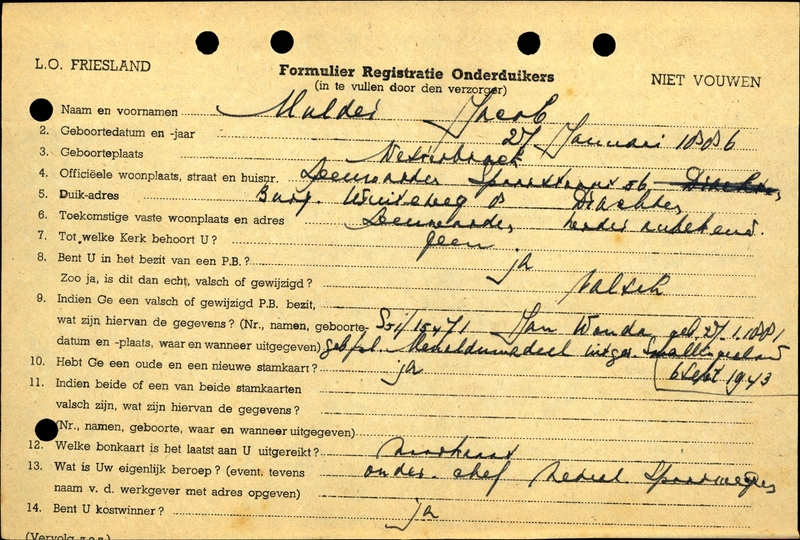 L.O. FRIESLAND
Formulier Registratie Onderduikers
(in te vullen door den verzorger)
NIET VOUWEN
Naam en voornamen Mulder Jacob
2. Geboortedatum en -jaar 27 Januari
3. Geboorteplaats
4. Officiëele woonplaats, straat en huisnr. Leeuwarden
5. Duik-adres Burg. Wuiteweg Drachten
6. Toekomstige vaste woonplaats en adres Leeuwarden, verder onbekend.
7. Tot welke Kerk behoort U? geen.
8. Bent U in het bezit van een P.B.? ja
Zoo ja, is dit dan echt, valsch of gewijzigd? valsch
9. Indien Ge een valsch of gewijzigd P.B. bezit,
wat zijn hiervan de gegevens? (Nr., namen, geboorte- Jan Wouda geb. 27.1.
datum en -plaats, waar en wanneer uitgegeven) geb.pl. Menaldumadeel uitgeg. Smallingerland
10. Hebt Ge een oude en een nieuwe stamkaart? ja 6 Sept 1943
11. Indien beide of een van beide stamkaarten
valsch zijn, wat zijn hiervan de gegevens?
(Nr., namen, geboorte, waar en wanneer uitgegeven)
12. Welke bonkaart is het laatst aan U uitgereikt?
13. Wat is Uw eigenlijk beroep? (event. tevens onder-chef Nederl. Spoorwegen
naam v. d. werkgever met adres opgeven)
14. Bent U kostwinner? ja
(Vervolg z.o.z.)